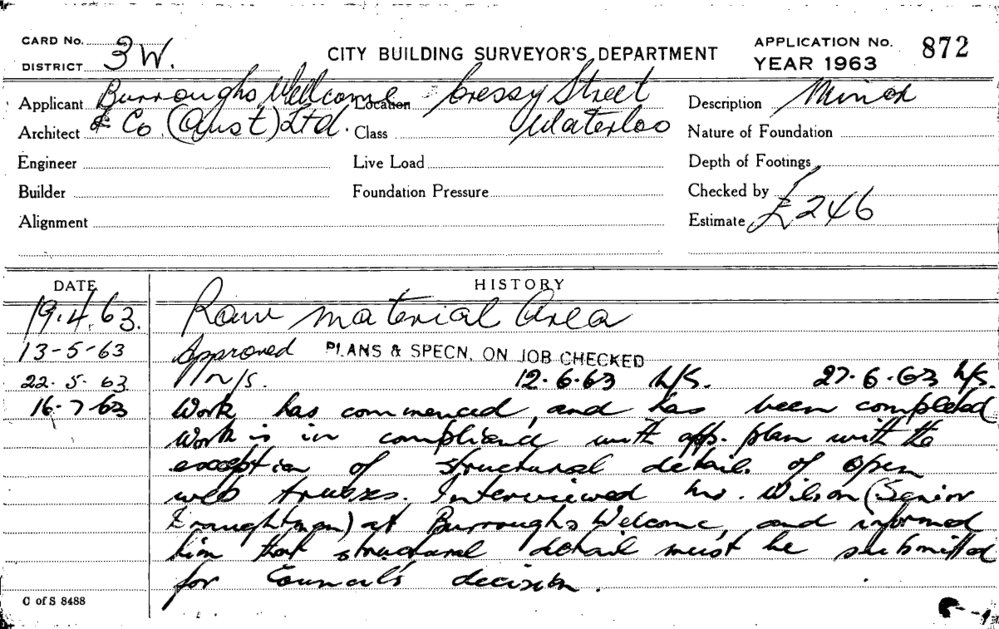 CARD No.
DISTRICT 3W.
CITY BUILDING SURVEYOR'S DEPARTMENT
APPLICATION No. 872
YEAR 1963
Applicant Burroughs Wellcome
Location Cressy Street
Description Minor
Architect & Co. (Aust) Ltd.
Class Waterloo
Nature of Foundation
Engineer
Live Load
Depth of Footings
Builder
Foundation Pressure
Checked by
Alignment
Estimate £246
DATE HISTORY
19.4.63. Raw material Area
13-5-63 Approved PLANS & SPECN. ON JOB CHECKED
22.5.63 N/S. 12.6.63 N/S. 27.6.63 N/S.
16.7.63 Work has commenced, and has been completed
Work is in compliance with app. plan with the
exception of structural detail of open
web trusses. Interviewed Mr. Wilson (Senior
Draughtman) at Burroughs Welcome, and informed
him that structural detail must be submitted
for Council's decision.
C of S 8488